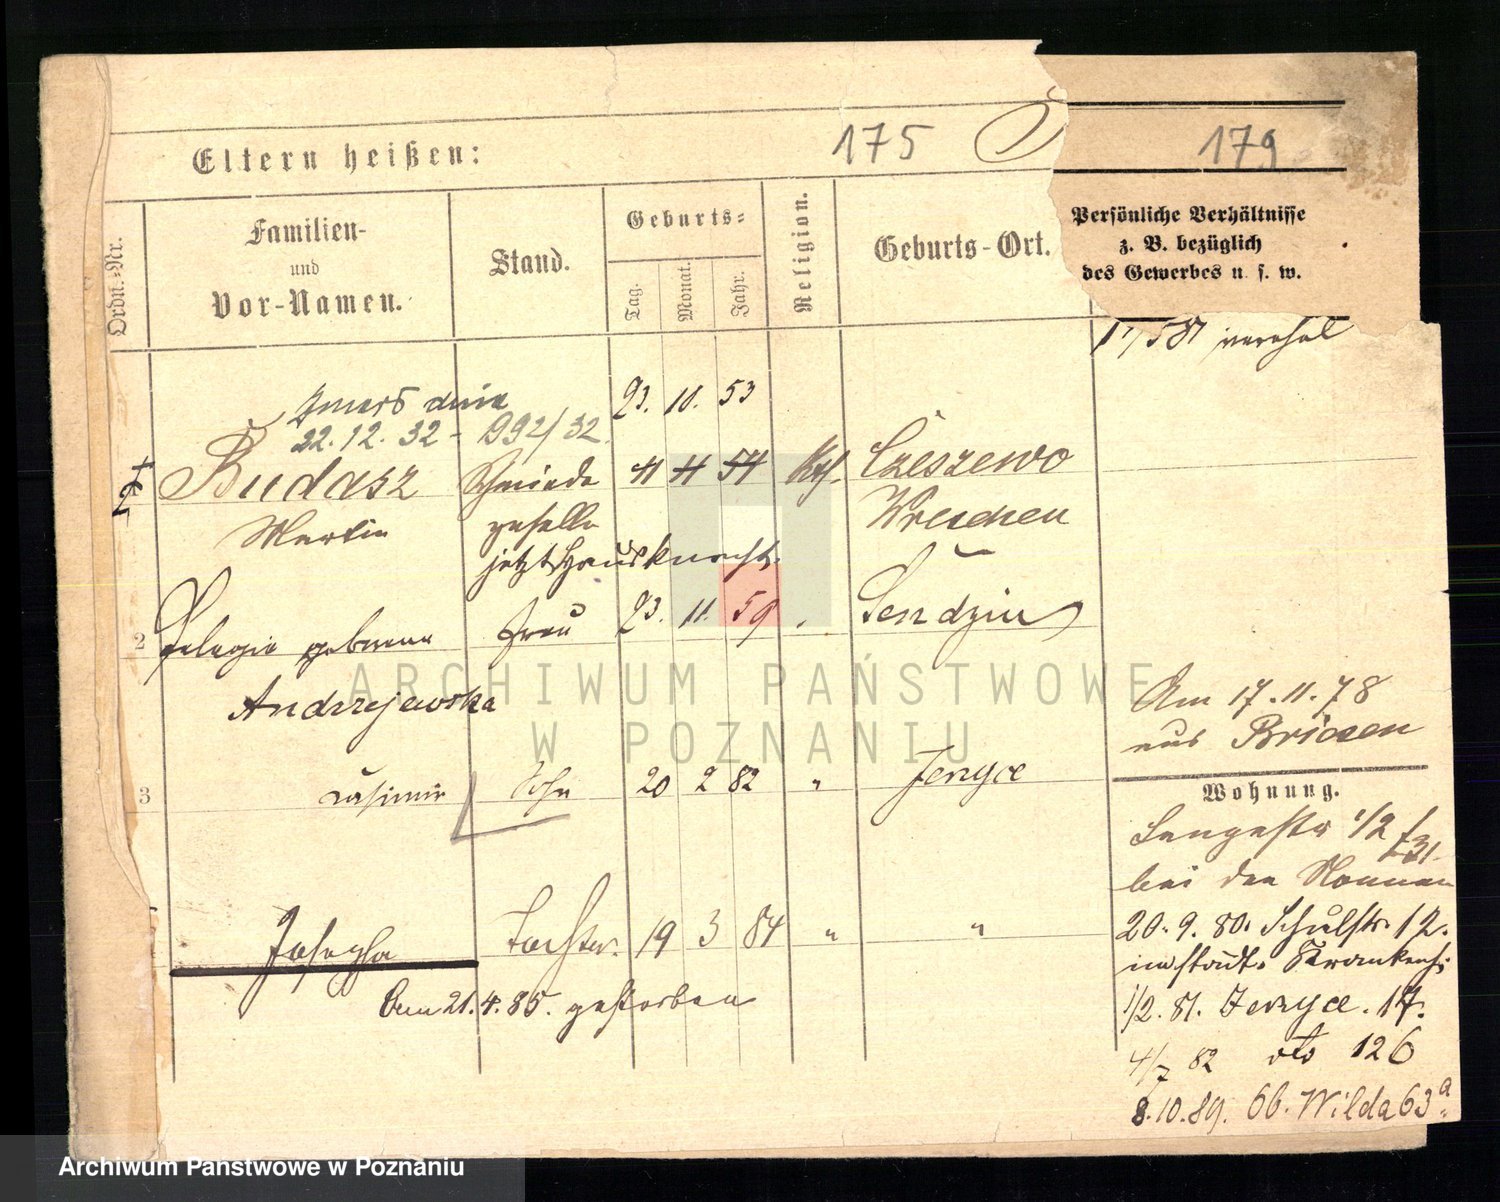 175 179
Eltern heißen:
Ordn.-Nr.
Familien-
und
Vor-Namen.
Stand.
Geburts-
Tag.
Monat.
Jahr.
Religion.
Geburts-Ort.
Persönliche Verhältnisse
z. B. bezüglich
des Gewerbes u. s. w.
zmarł dnia
22.12.32 - 992/32
23. 10. 53
Budasz Schmiede 11 11 54 Kth. Czeszewo
Martin geselle Wreschen
jetzt Hausknecht.
2 Pelagie geborene Frau 23. 11. 59 Sendziu
Andrzejewska
Am 17.11.78
aus Briesen
3 Casimir Sohn 20 2 82 " Jerzyce
Wohnung.
Langestr 1/2
bei den Nonnen
Josepha Tochter. 19 3 84 " "
20.9.80. Schulstr. 12.
im städt. Krankenh.
Am 21.4.85. gestorben
1/2. 81. Jerzyce. 17.
4/7 82 dto 126
8.10.89. Ob. Wilda 63a
ARCHIWUM PAŃSTWOWE
W POZNANIU
Archiwum Państwowe w Poznaniu